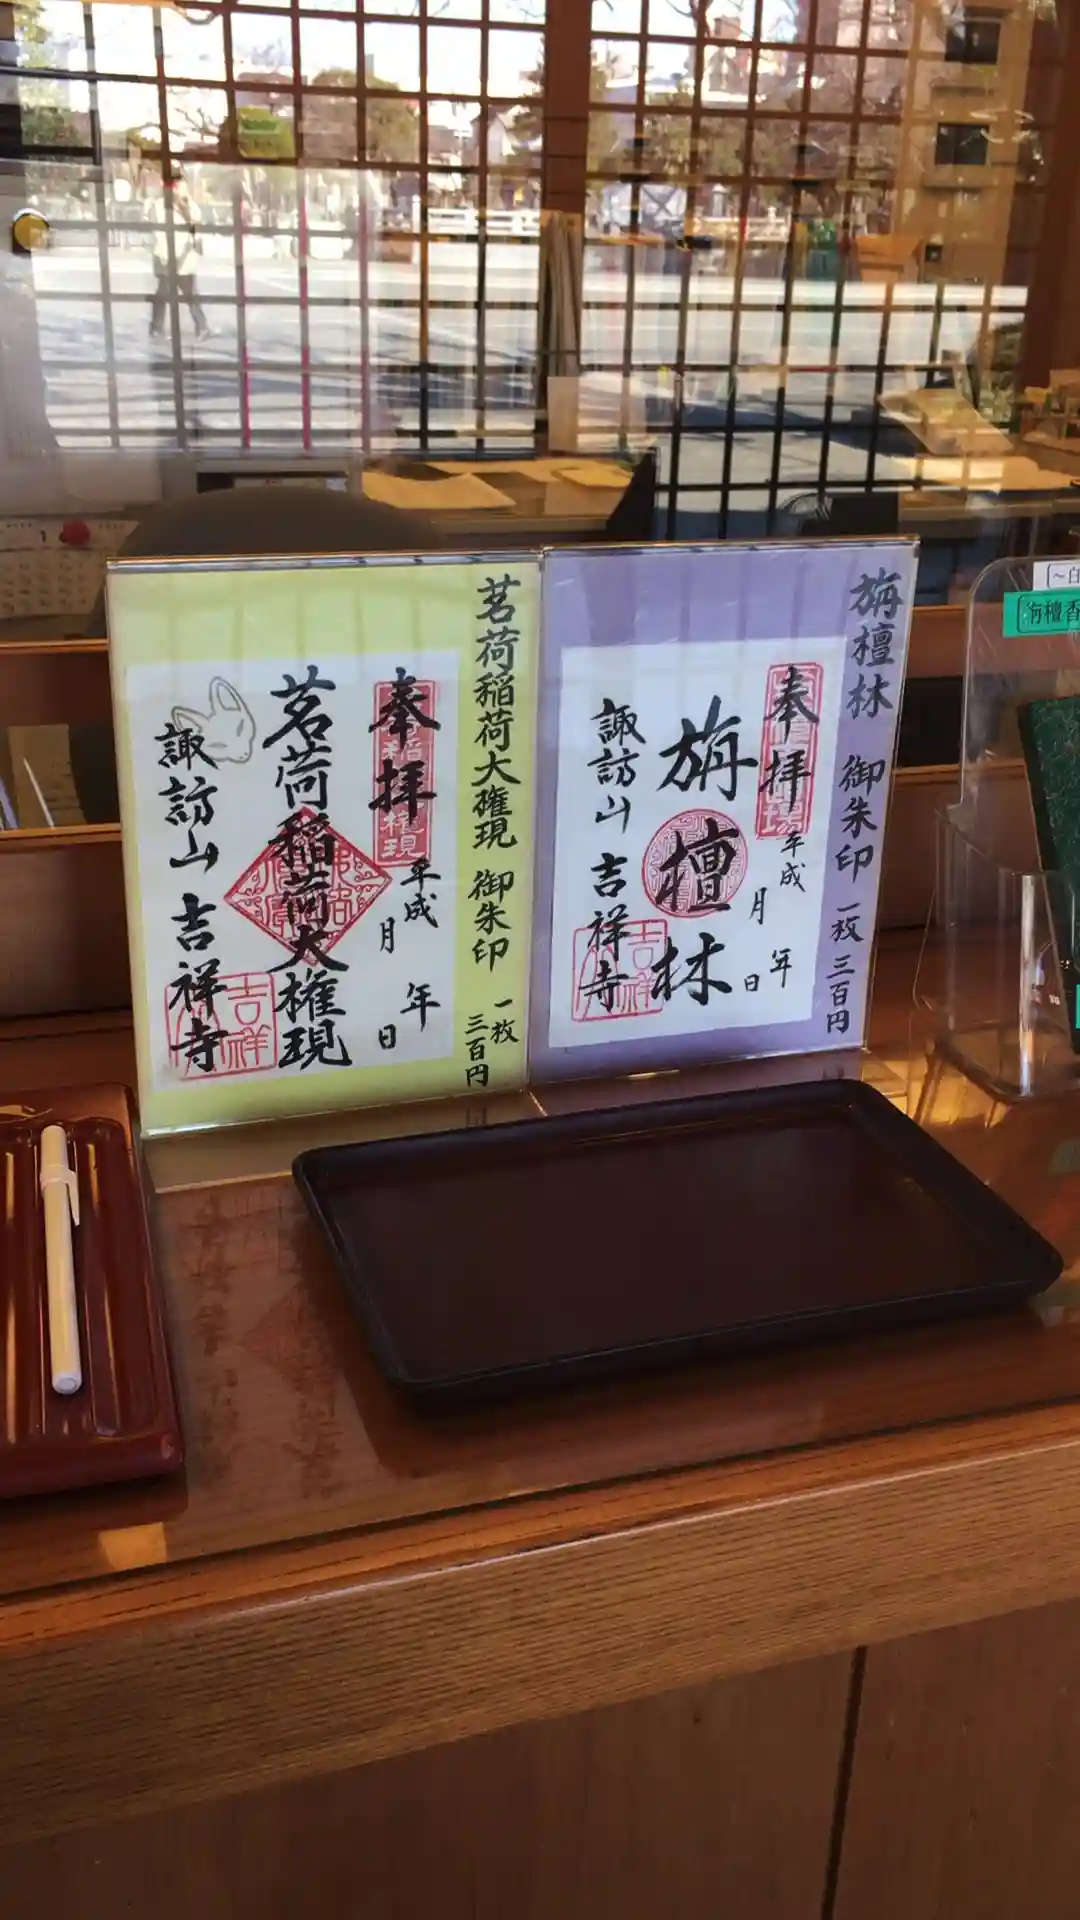 茗荷稲荷大権現 御朱印 一枚
三百円
奉拝
平成 年
月 日
茗荷稲荷大権現
諏訪山 吉祥寺
吉祥
旃檀林 御朱印 一枚 三百円
奉拝
平成 年
月 日
旃檀林
諏訪山 吉祥寺
吉祥
檀香